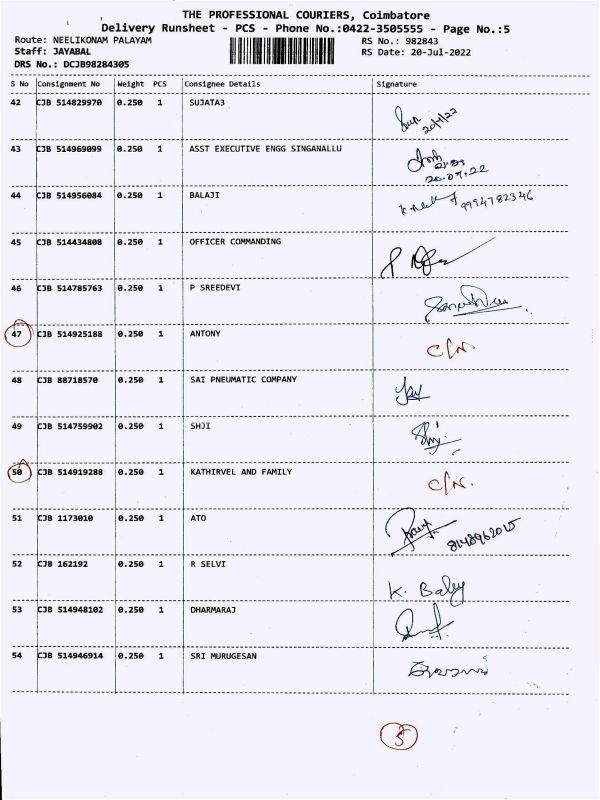 THE PROFESSIONAL COURIERS, Coimbatore
Delivery Runsheet - PCS - Phone No.:0422-3505555 - Page No.:5
Route: NEELIKONAM PALAYAM RS No.: 982843
Staff: JAYABAL RS Date: 20-Jul-2022
DRS No.: DCJB98284305
S No Consignment No Weight PCS Consignee Details Signature
42 CJB 514829970 0.250 1 SUJATA3
43 CJB 514969099 0.250 1 ASST EXECUTIVE ENGG SINGANALLU
20.07.22
44 CJB 514956084 0.250 1 BALAJI
9994782346
45 CJB 514434808 0.250 1 OFFICER COMMANDING
46 CJB 514785763 0.250 1 P SREEDEVI
47 CJB 514925188 0.250 1 ANTONY C/N.
48 CJB 88718570 0.250 1 SAI PNEUMATIC COMPANY
49 CJB 514759902 0.250 1 SHJI
50 CJB 514919288 0.250 1 KATHIRVEL AND FAMILY C/N.
51 CJB 1173010 0.250 1 ATO
52 CJB 162192 0.250 1 R SELVI
K. Baby
53 CJB 514948102 0.250 1 DHARMARAJ
54 CJB 514946914 0.250 1 SRI MURUGESAN
5